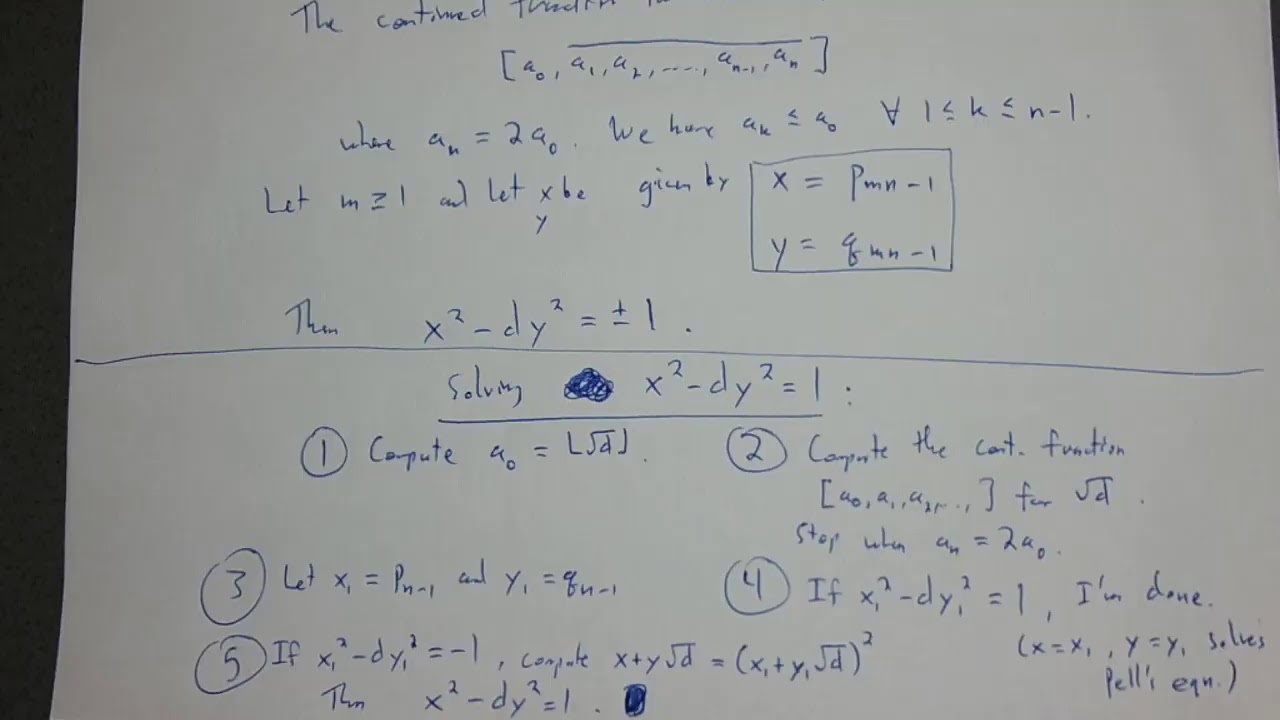 The continued
[a₀, a₁, a₂, ....., aₙ₋₁, aₙ]
where aₙ = 2a₀. We have aₖ ≤ a₀ ∀ 1 ≤ k ≤ n-1.
Let m ≥ 1 and let x be given by x = pₘₙ₋₁
y y = qₘₙ₋₁
Then x² - dy² = ± 1.
Solving x² - dy² = 1 :
① Compute a₀ = ⌊√d⌋.
② Compute the cont. function
[a₀, a₁, a₂, ..., ] for √d.
Stop when aₙ = 2a₀.
③ Let x₁ = pₙ₋₁ and y₁ = qₙ₋₁
④ If x₁² - dy₁² = 1, I'm done.
(x = x₁, y = y₁ solves
Pell's eqn.)
⑤ If x₁² - dy₁² = -1, compute x + y√d = (x₁ + y₁√d)²
Then x² - dy² = 1.